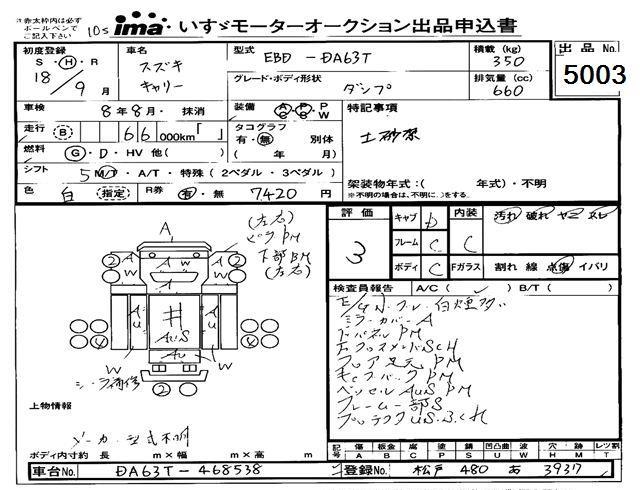 ※赤太枠内は必ずボールペンでご記入下さい
10s ima いすゞモーターオークション出品申込書
初度登録 S・H・R 18/9月
車名 スズキ キャリー
型式 EBD-DA63T
グレード・ボディ形状 ダンプ
積載(kg) 350
排気量(cc) 660
出品No. 5003
車検 8年8月・抹消
装備 A/C P/S P/W
特記事項
走行 B 66,000km「 」
タコグラフ 有・無 別体
土砂禁
燃料 G・D・HV 他( )
( 年 月)
シフト 5 M/T・A/T・特殊(2ペダル・3ペダル)
架装物年式:( 年式)・不明
(※不明の場合は、不明に○する。)
色 白 (指定) R券 有・無 7420円
評価 3
キャブ D 内装 C
汚れ 破れ ヤニ ヌレ
フレーム C
ボディ C Fガラス 割れ 線 点傷 イバリ
(左右)
ピラPM
下部BM
(左右)
A
A W
A U
A W
AUS
AU
W
W
2
検査員報告 A/C( ) B/T( )
E/G 白煙多い
ミラーカバーA
PM
SCH
フロア足元PM
バックPM
AUS PM
フレーム一部S
US.S.CH
上物情報
メーカー・型式不明
ボディ内寸約 長 m×幅 m×高 m
記号 傷A 板金B 腐C 塗P 錆S 凹凸曲U 波W 穴H 跡M レツ割T
車台No. DA63T-468538
登録No. 松戸 480 あ 3937